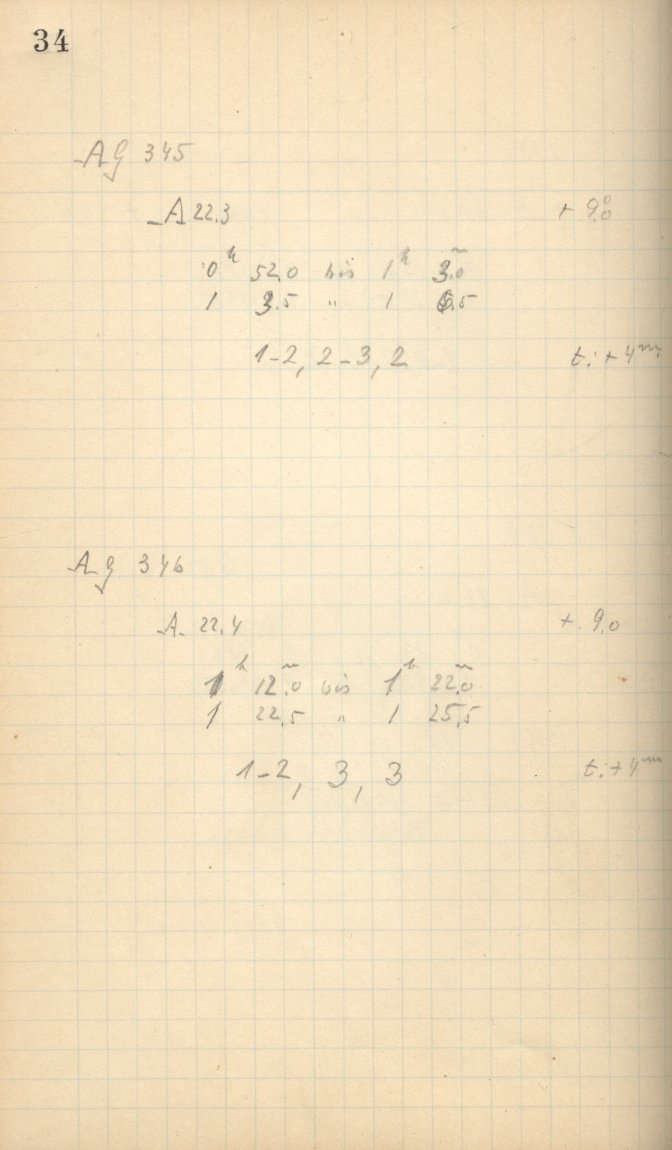 34
AG 345
A 22.3 + 9°.0
0h 52.0 bis 1h 3m.0
1 3.5 " 1 6.5
1-2, 2-3, 2 t: + 4m
AG 346
A. 22.4 + 9.0
1h 12m.0 bis 1h 22m.0
1 22.5 " 1 25.5
1-2, 3, 3 t: +4m